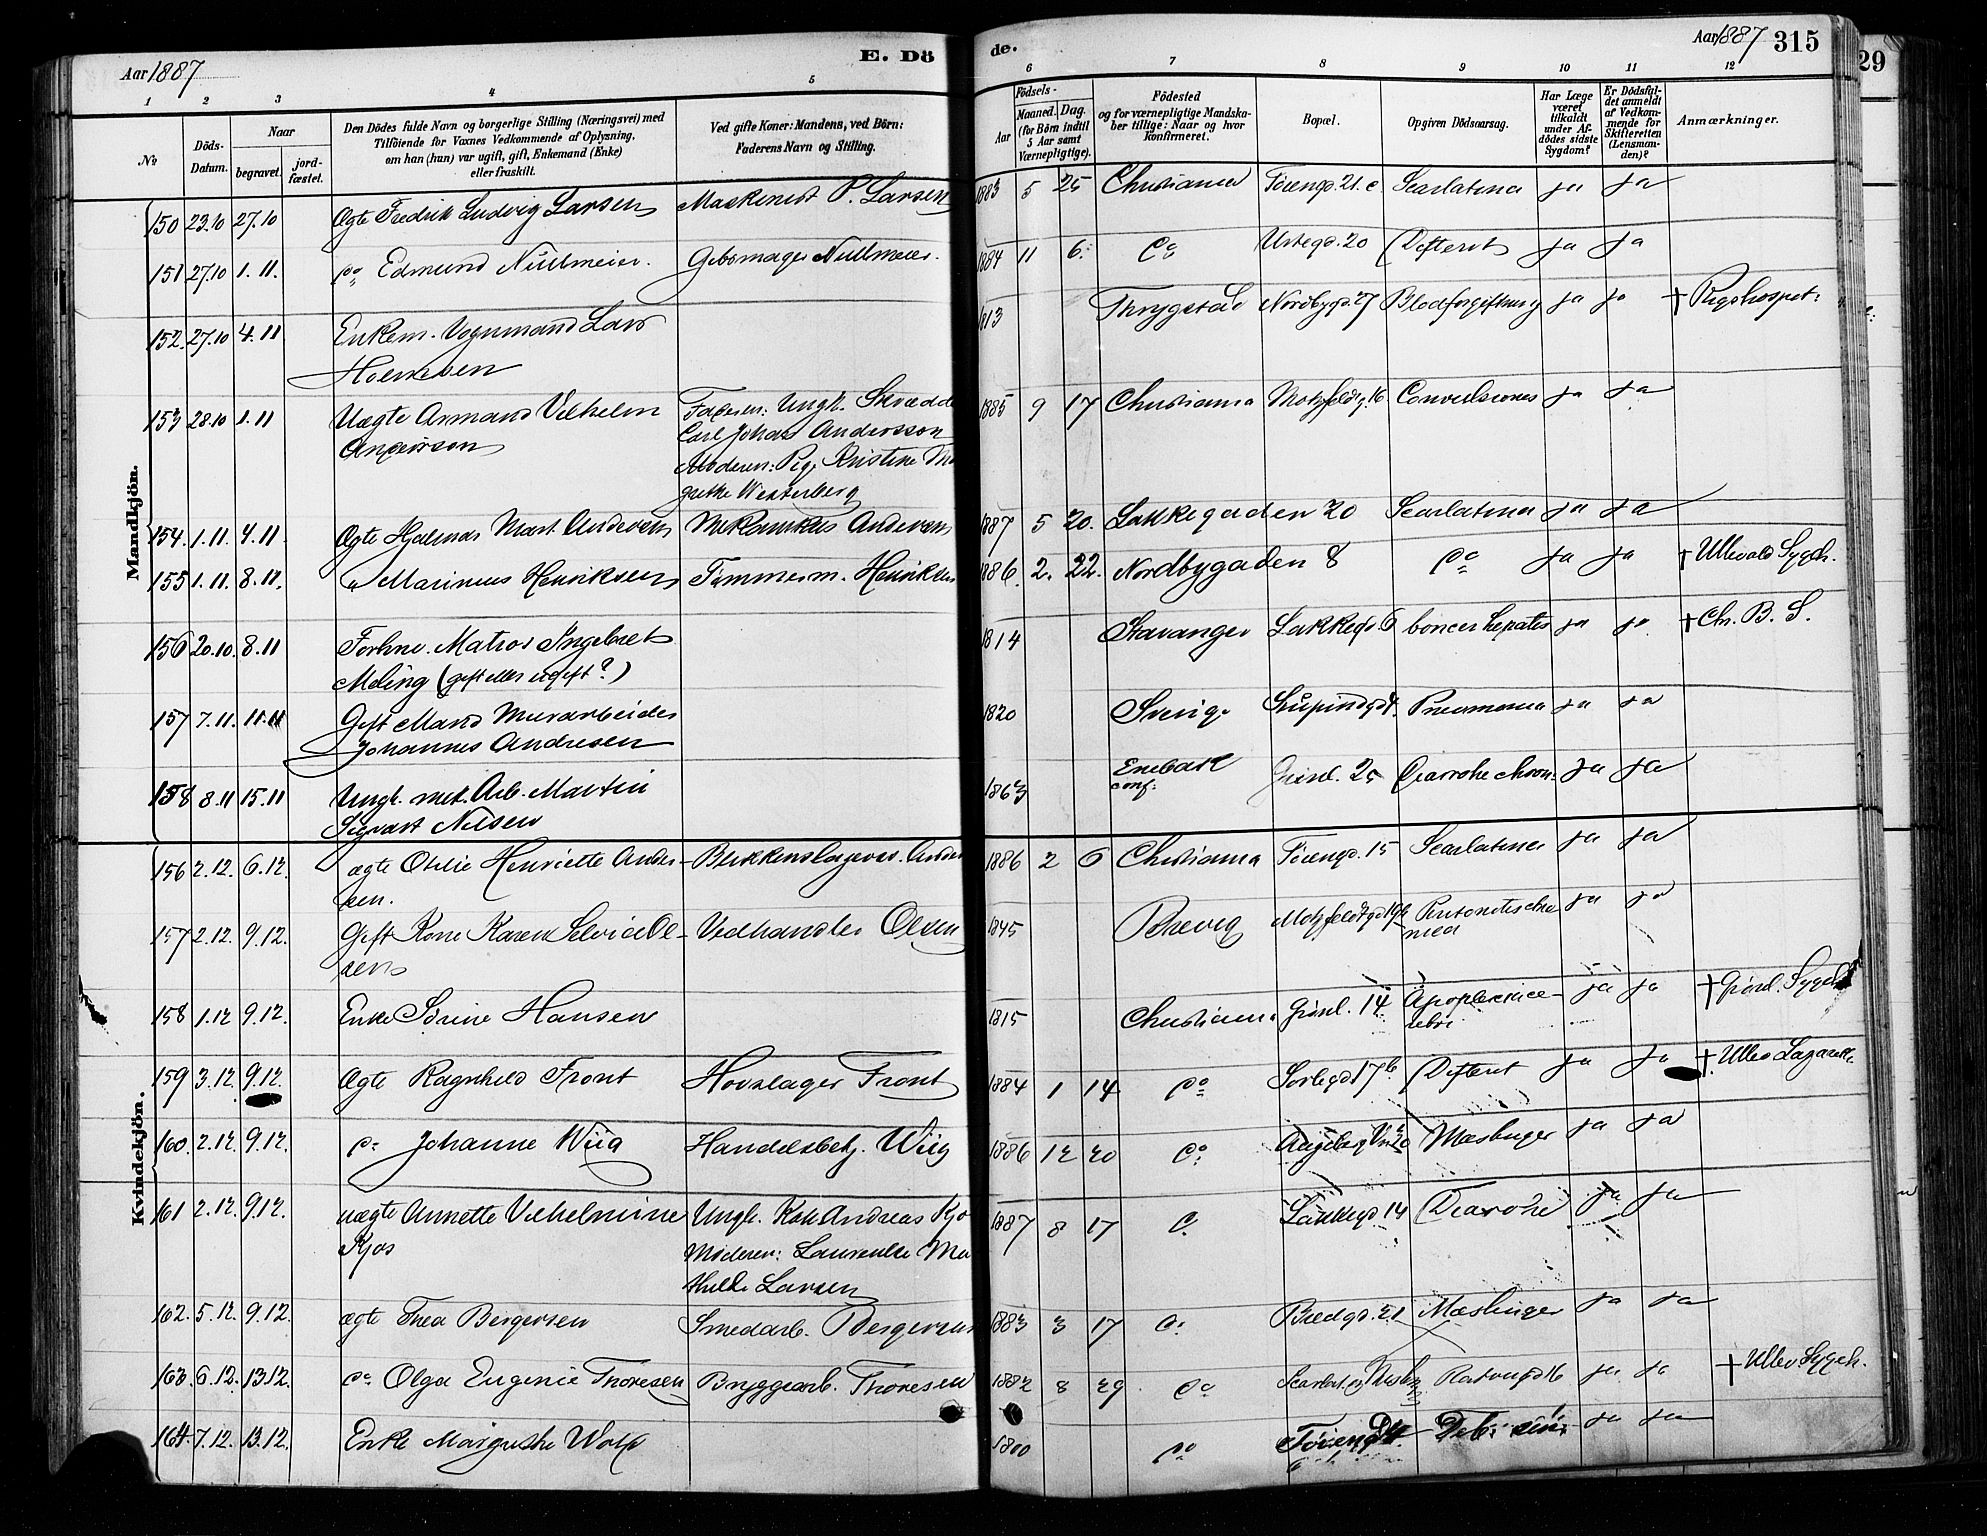 Aar 1887
E. Dö
de.
Aar 1887 315
29
1 2 3 4 5 6 7 8 9 10 11 12
No
Döds-
Datum.
Naar
begravet.
jord-
fæstet.
Den Dödes fulde Navn og borgerlige Stilling (Næringsvei) med
Tilföiende for Voxnes Vedkommende af Oplysning,
om han (hun) var ugift, gift, Enkemand (Enke)
eller fraskilt.
Ved gifte Koner: Mandens, ved Börn:
Faderens Navn og Stilling.
Födsels-
Aar
Maaned. Dag.
(for Börn indtil
5 Aar samt
Værnepligtige).
Födested
og for værnepligtige Mandska-
ber tillige: Naar og hvor
Konfirmeret.
Bopæl.
Opgiven Dödsaarsag.
Har Læge
været
tilkaldt
under Af-
dödes sidste
Sygdom?
Er Dödsfal-
det anmeldt
af Vedkom-
mende for
Skifteretten
(Lensman-
den)?
Anmærkninger.
Mandkjön.
150 23.10 27.10 Ægte Fredrik Ludvig Larsen Maskinist P. Larsen 1883 5 25 Christiania Töiengd. 21.c Scarlatina ja ja
151 27.10 1.11. do Edmund Nullmeier. Gibsmager Nullmeier. 1884 11 6. do Urtegd. 20 Difterit ja ja
152. 27.10 4.11 Enkem. Vognmand Lars 1813 Thrygstad Nordbygd. 27 Blodforgiftning ja ja † Rigshospit:
Holmsen
153 28.10 1.11 Uægte Armand Vilhelm Faderen: Ungk. 1885 9 17 Christiania Motzfeldtg. 16 Convulsiones ja ja
Andersson Carl Johan Andersson
Moderen: Pige Kristine Ma
grethe Westerberg
154. 1.11. 4.11 Ægte Hjalmar Mart. Andersen Mekanikus Andersen 1887 5 20. Lakkegaden 20 Scarlatina ja ja
155 1.11. 8.11. " Marinius Henriksen Tømmerm. Henriksen 1886. 2. 22. Nordbygaden 8 do ja ja † Ullevold Sygeh.
156 20.10. 8.11 Forhnv. Matros Ingebret 1814 Stavanger Lakkegd. 6 hepatis ja ja † Ch. B. S.
Meling (gift eller ugift?)
157 7.11. 11.11 Gift Mand Murarbeider 1820 Sverige Pneumonia ja ja
Johannes Andresen
158 8.11 15.11 Ungk. met. Arb. Martin 1863 Enebak Grönl. 25 Diarrohe chron. ja ja
conf:
Sigvart Nilsen
Kvindekjön.
156 2.12. 6.12. ægte Otilie Henriette Ander- Blikkenslagersv. Ander 1886 2 6 Christiania Töiengd. 15 Scarlatina ja ja
sen.
157 2.12. 9.12. Gift Kone Karen Selvia Ol- Vedhandler Olsen 1845 Brevig ja ja
sens
158 1.12 9.12. Enke Sørine Hansen 1815 Christiania Grönl. 14 Apoplexia ce- ja ja † Grönl. Sygeh.
rebri
159 3.12 9.12. Ægte Ragnhild Front Hovslager Front 1884 1 14 do Sorlegd 17 b Difterit ja ja †. Ullev. Lazareth.
160. 2.12. 9.12. do Johanne Wiig Handelsbetj. Wiig 1886 12 20 do Mæslinger ja ja
161 2.12. 9.12. uægte Annette Vilhelmine Ungk. Kok Andreas Kjo 1887 8 17 do Lakkegd 14 Diarohe ja ja
Kjos Moderen: Laurentse Ma
thilde Larsen
162. 5.12. 9.12. ægte Thea Bergersen Smedarb. Bergersen 1883 3 17 do Bredgd. 21 Mæslinger ja ja
163. 6.12. 13.12. do Olga Eugenie Thoresen Bryggearb. Thoresen 1882 8 29 do ja ja † Ullev Sygeh.
164 7.12. 13.12. Enke Margrethe Wolf 1800 do Töiengd Deb. sen. ja ja